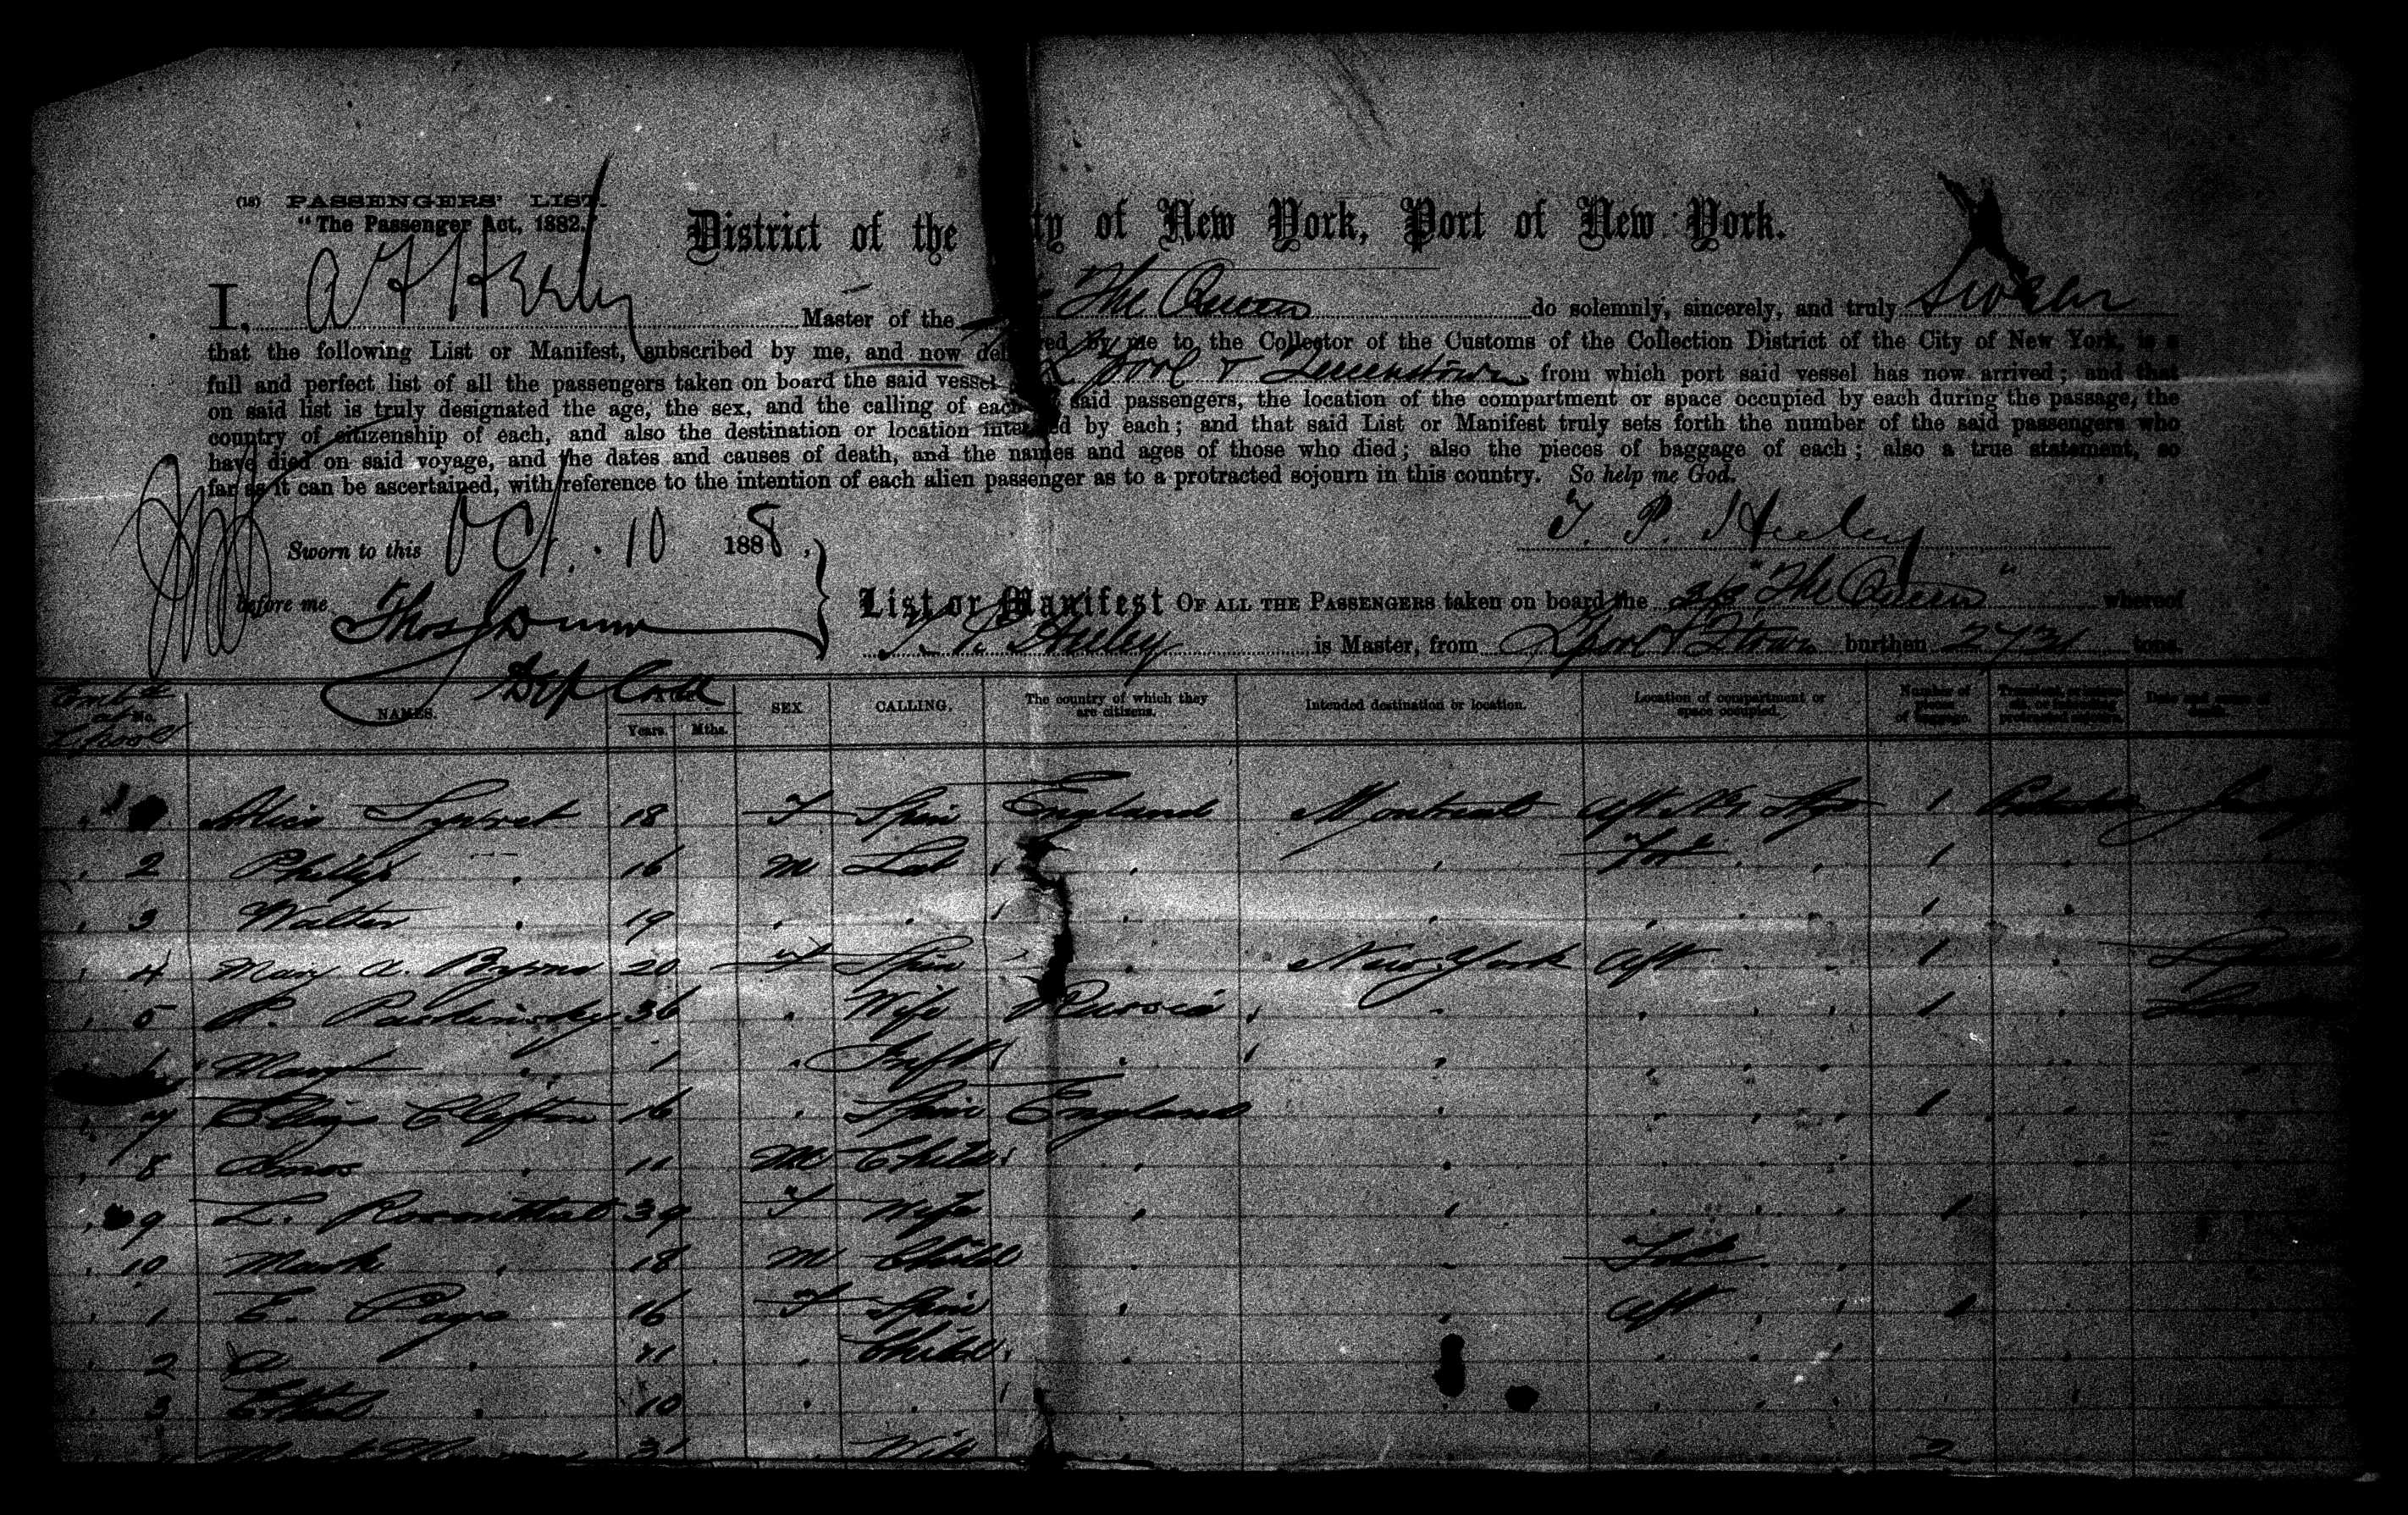 (18) PASSENGERS' LIST.
"The Passenger Act, 1882."
District of the ty of New York, Port of New York.
I, Master of the The Queen do solemnly, sincerely, and truly swear
that the following List or Manifest, subscribed by me, and now del ed by me to the Collector of the Customs of the Collection District of the City of New York, is a
full and perfect list of all the passengers taken on board the said vessel L'pool & Queenstown from which port said vessel has now arrived; and that
on said list is truly designated the age, the sex, and the calling of each said passengers, the location of the compartment or space occupied by each during the passage, the
country of citizenship of each, and also the destination or location inte ed by each; and that said List or Manifest truly sets forth the number of the said passengers who
have died on said voyage, and the dates and causes of death, and the names and ages of those who died; also the pieces of baggage of each; also a true statement, so
far as it can be ascertained, with reference to the intention of each alien passenger as to a protracted sojourn in this country. So help me God.
T. P. Heeley
Sworn to this Oct. 10 1888,
before me Thos J Dunn
List or Manifest OF ALL THE PASSENGERS taken on board the s/s "The Queen" whereof
T. P. Heeley is Master, from L'pool & Q'town burthen 2731 tons.
No. NAMES. Years. Mths. SEX CALLING. The country of which they are citizens. Intended destination or location. Location of compartment or space occupied. Number of pieces of baggage.
Alice 18 F Spin England Montreal Aft 1
2 Philip " 16 M Lab " " Fore " " 1 "
3 Walter " 19 " " " " " " " " 1 "
4 Mary A. Byrne 20 F Spin " New York Aft " " 1 "
5 P. 36 " Wife Russia " " " " 1 "
Margt " 1 " Inft " " " " "
7 Eliza Clifton 16 " Spin England " " " " 1 "
8 Amos " 11 M Child " " " " "
9 L. Rosenthal 39 F Wife " " " " " 1 "
10 Mark " 18 M Child " " Fore " "
1 E. Page 16 F Spin " " Aft " " 1
2 A " 11 " Child " " " " "
3 Ethel " 10 " " " " " " "
31 Wife 2